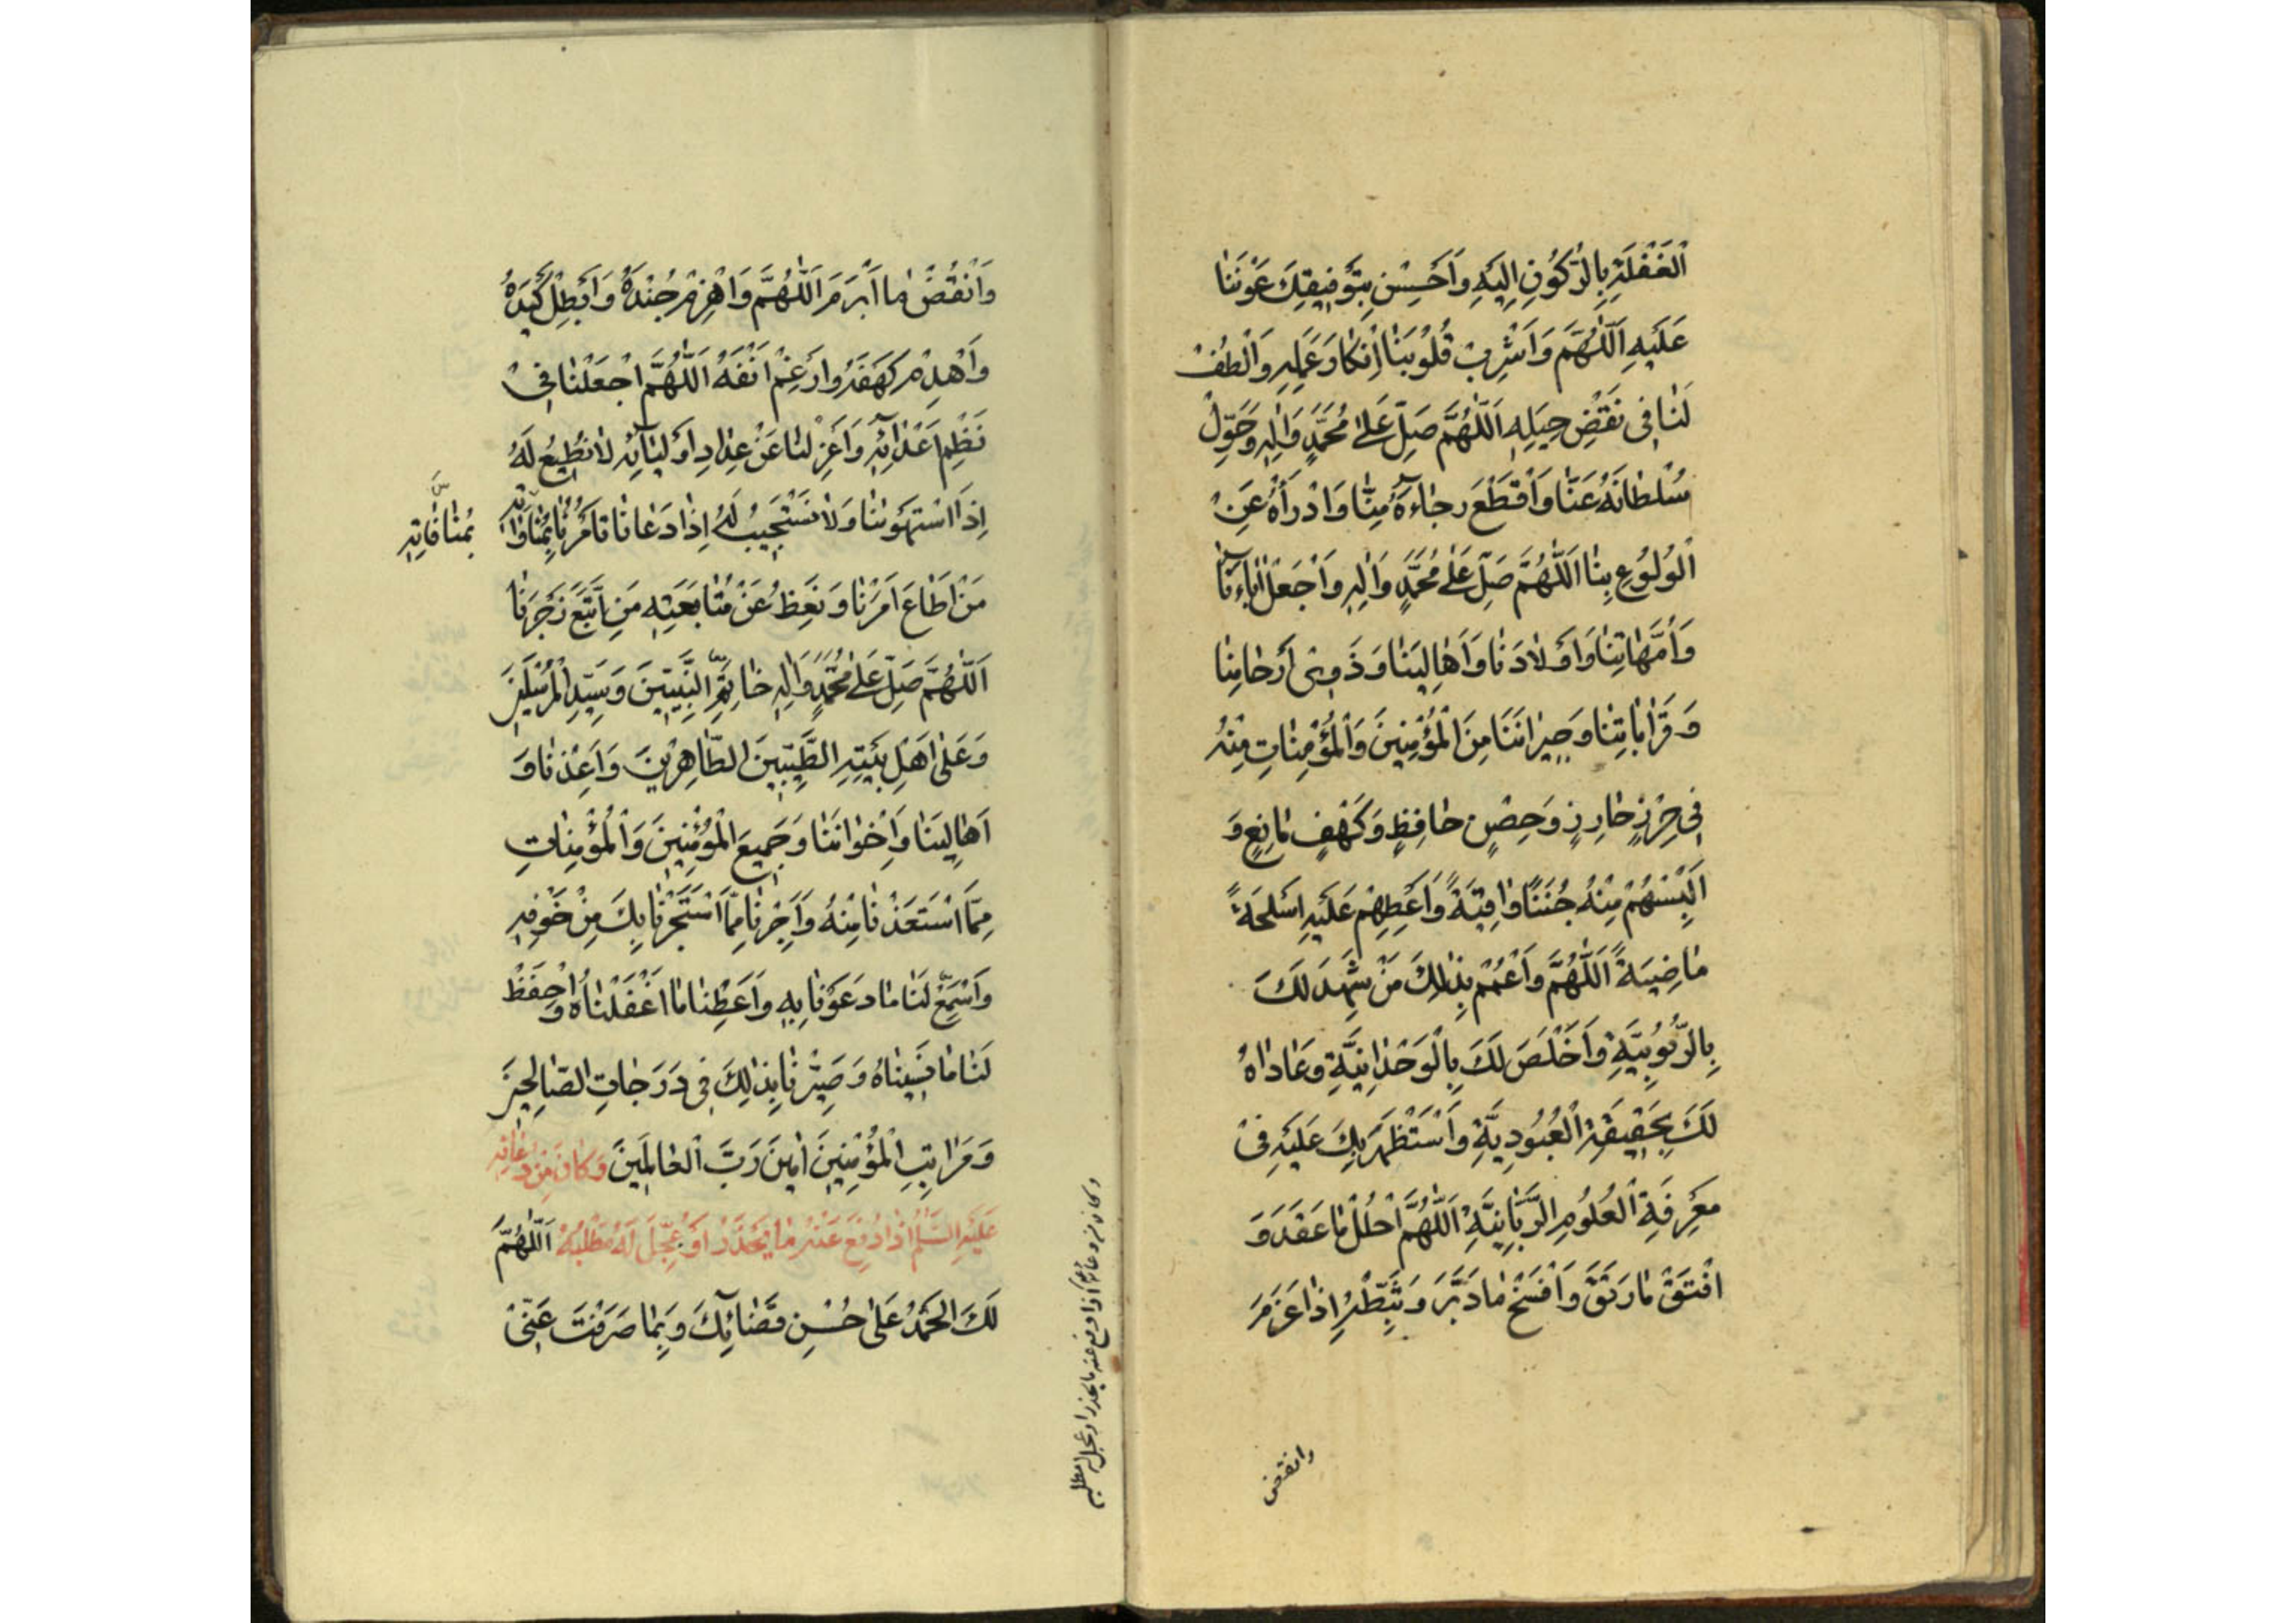 الْغَفْلَةِ بِالرُّكُونِ اِلَيْهِ وَاَحْسِنْ بِتَوْفِيقِكَ عَوْنَنَا
عَلَيْهِ اَللّٰهُمَّ وَاَشْرِبْ قُلُوبَنَا اِنْكَارَ عَمَلِهِ وَالْطُفْ
لَنَا فِي نَقْضِ حِيَلِهِ اَللّٰهُمَّ صَلِّ عَلٰى مُحَمَّدٍ وَاٰلِهِ وَحَوِّلْ
سُلْطَانَهُ عَنَّا وَاقْطَعْ رَجَآءَهُ مِنَّا وَادْرَأْهُ عَنِ
الْوُلُوعِ بِنَا اَللّٰهُمَّ صَلِّ عَلٰى مُحَمَّدٍ وَاٰلِهِ وَاجْعَلْ اٰبَآءَنَا
وَاُمَّهَاتِنَا وَاَوْلَادَنَا وَاَهَالِيَنَا وَذَوِي اَرْحَامِنَا
وَقَرَابَاتِنَا وَجِيرَانَنَا مِنَ الْمُؤْمِنِينَ وَالْمُؤْمِنَاتِ مِنْهُ
فِي حِرْزٍ حَارِزٍ وَحِصْنٍ حَافِظٍ وَكَهْفٍ مَانِعٍ وَ
اَلْبِسْهُمْ مِنْهُ جُنَنًا وَاقِيَةً وَاَعْطِهِمْ عَلَيْهِ اَسْلِحَةً
مَاضِيَةً اَللّٰهُمَّ وَاعْمُمْ بِذٰلِكَ مَنْ شَهِدَ لَكَ
بِالرُّبُوبِيَّةِ وَاَخْلَصَ لَكَ بِالْوَحْدَانِيَّةِ وَعَادَاهُ
لَكَ بِحَقِيقَةِ الْعُبُودِيَّةِ وَاسْتَظْهَرَ بِكَ عَلَيْهِ فِي
مَعْرِفَةِ الْعُلُومِ الرَّبَّانِيَّةِ اَللّٰهُمَّ احْلُلْ مَا عَقَدَ وَ
افْتَقْ مَا رَتَقَ وَافْسَخْ مَا دَبَّرَ وَثَبِّطْهُ اِذَا عَزَمَ
وانقض
وَانْقُضْ مَا اَبْرَمَ اَللّٰهُمَّ وَاهْزِمْ جُنْدَهُ وَاَبْطِلْ كَيْدَهُ
وَاهْدِمْ كَهْفَهُ وَارْغِمْ اَنْفَهُ اَللّٰهُمَّ اجْعَلْنَا فِي
نَظْمِ اَعْدَآئِهِ وَاعْزِلْنَا عَنْ عِدَادِ اَوْلِيَآئِهِ لَا نُطِيعُ لَهُ
اِذَا اسْتَهْوَانَا وَلَا نَسْتَجِيبُ لَهُ اِذَا دَعَانَا نَأْمُرُ بِمُنَاوَاتِهِ
بِمُنَافَاتِهِ
مَنْ اَطَاعَ اَمْرَنَا وَنَعِظُ عَنْ مُتَابَعَتِهِ مَنِ اتَّبَعَ زَجْرَنَا
اَللّٰهُمَّ صَلِّ عَلٰى مُحَمَّدٍ وَاٰلِهِ خَاتِمِ النَّبِيِّينَ وَسَيِّدِ الْمُرْسَلِينَ
وَعَلٰى اَهْلِ بَيْتِهِ الطَّيِّبِينَ الطَّاهِرِينَ وَاَعِذْنَا وَ
اَهَالِيَنَا وَاِخْوَانَنَا وَجَمِيعَ الْمُؤْمِنِينَ وَالْمُؤْمِنَاتِ
مِمَّا اسْتَعَذْنَا مِنْهُ وَاَجِرْنَا مِمَّا اسْتَجَرْنَا بِكَ مِنْ خَوْفِهِ
وَاسْمَعْ لَنَا مَا دَعَوْنَا بِهِ وَاَعْطِنَا مَا اَغْفَلْنَاهُ وَاحْفَظْ
لَنَا مَا نَسِينَاهُ وَصَيِّرْنَا بِذٰلِكَ فِي دَرَجَاتِ الصَّالِحِينَ
وَمَرَاتِبِ الْمُؤْمِنِينَ اٰمِينَ رَبَّ الْعَالَمِينَ وَكَانَ مِنْ دُعَائِهِ
عَلَيْهِ السَّلَامُ اِذَا دُفِعَ عَنْهُ مَا يَحْذَرُ اَوْ عُجِّلَ لَهُ مَطْلَبُهُ اَللّٰهُمَّ
لَكَ الْحَمْدُ عَلٰى حُسْنِ قَضَآئِكَ وَبِمَا صَرَفْتَ عَنِّي
وكان من دعائه اذا دفع عنه ما يحذر او عجل له مطلبه